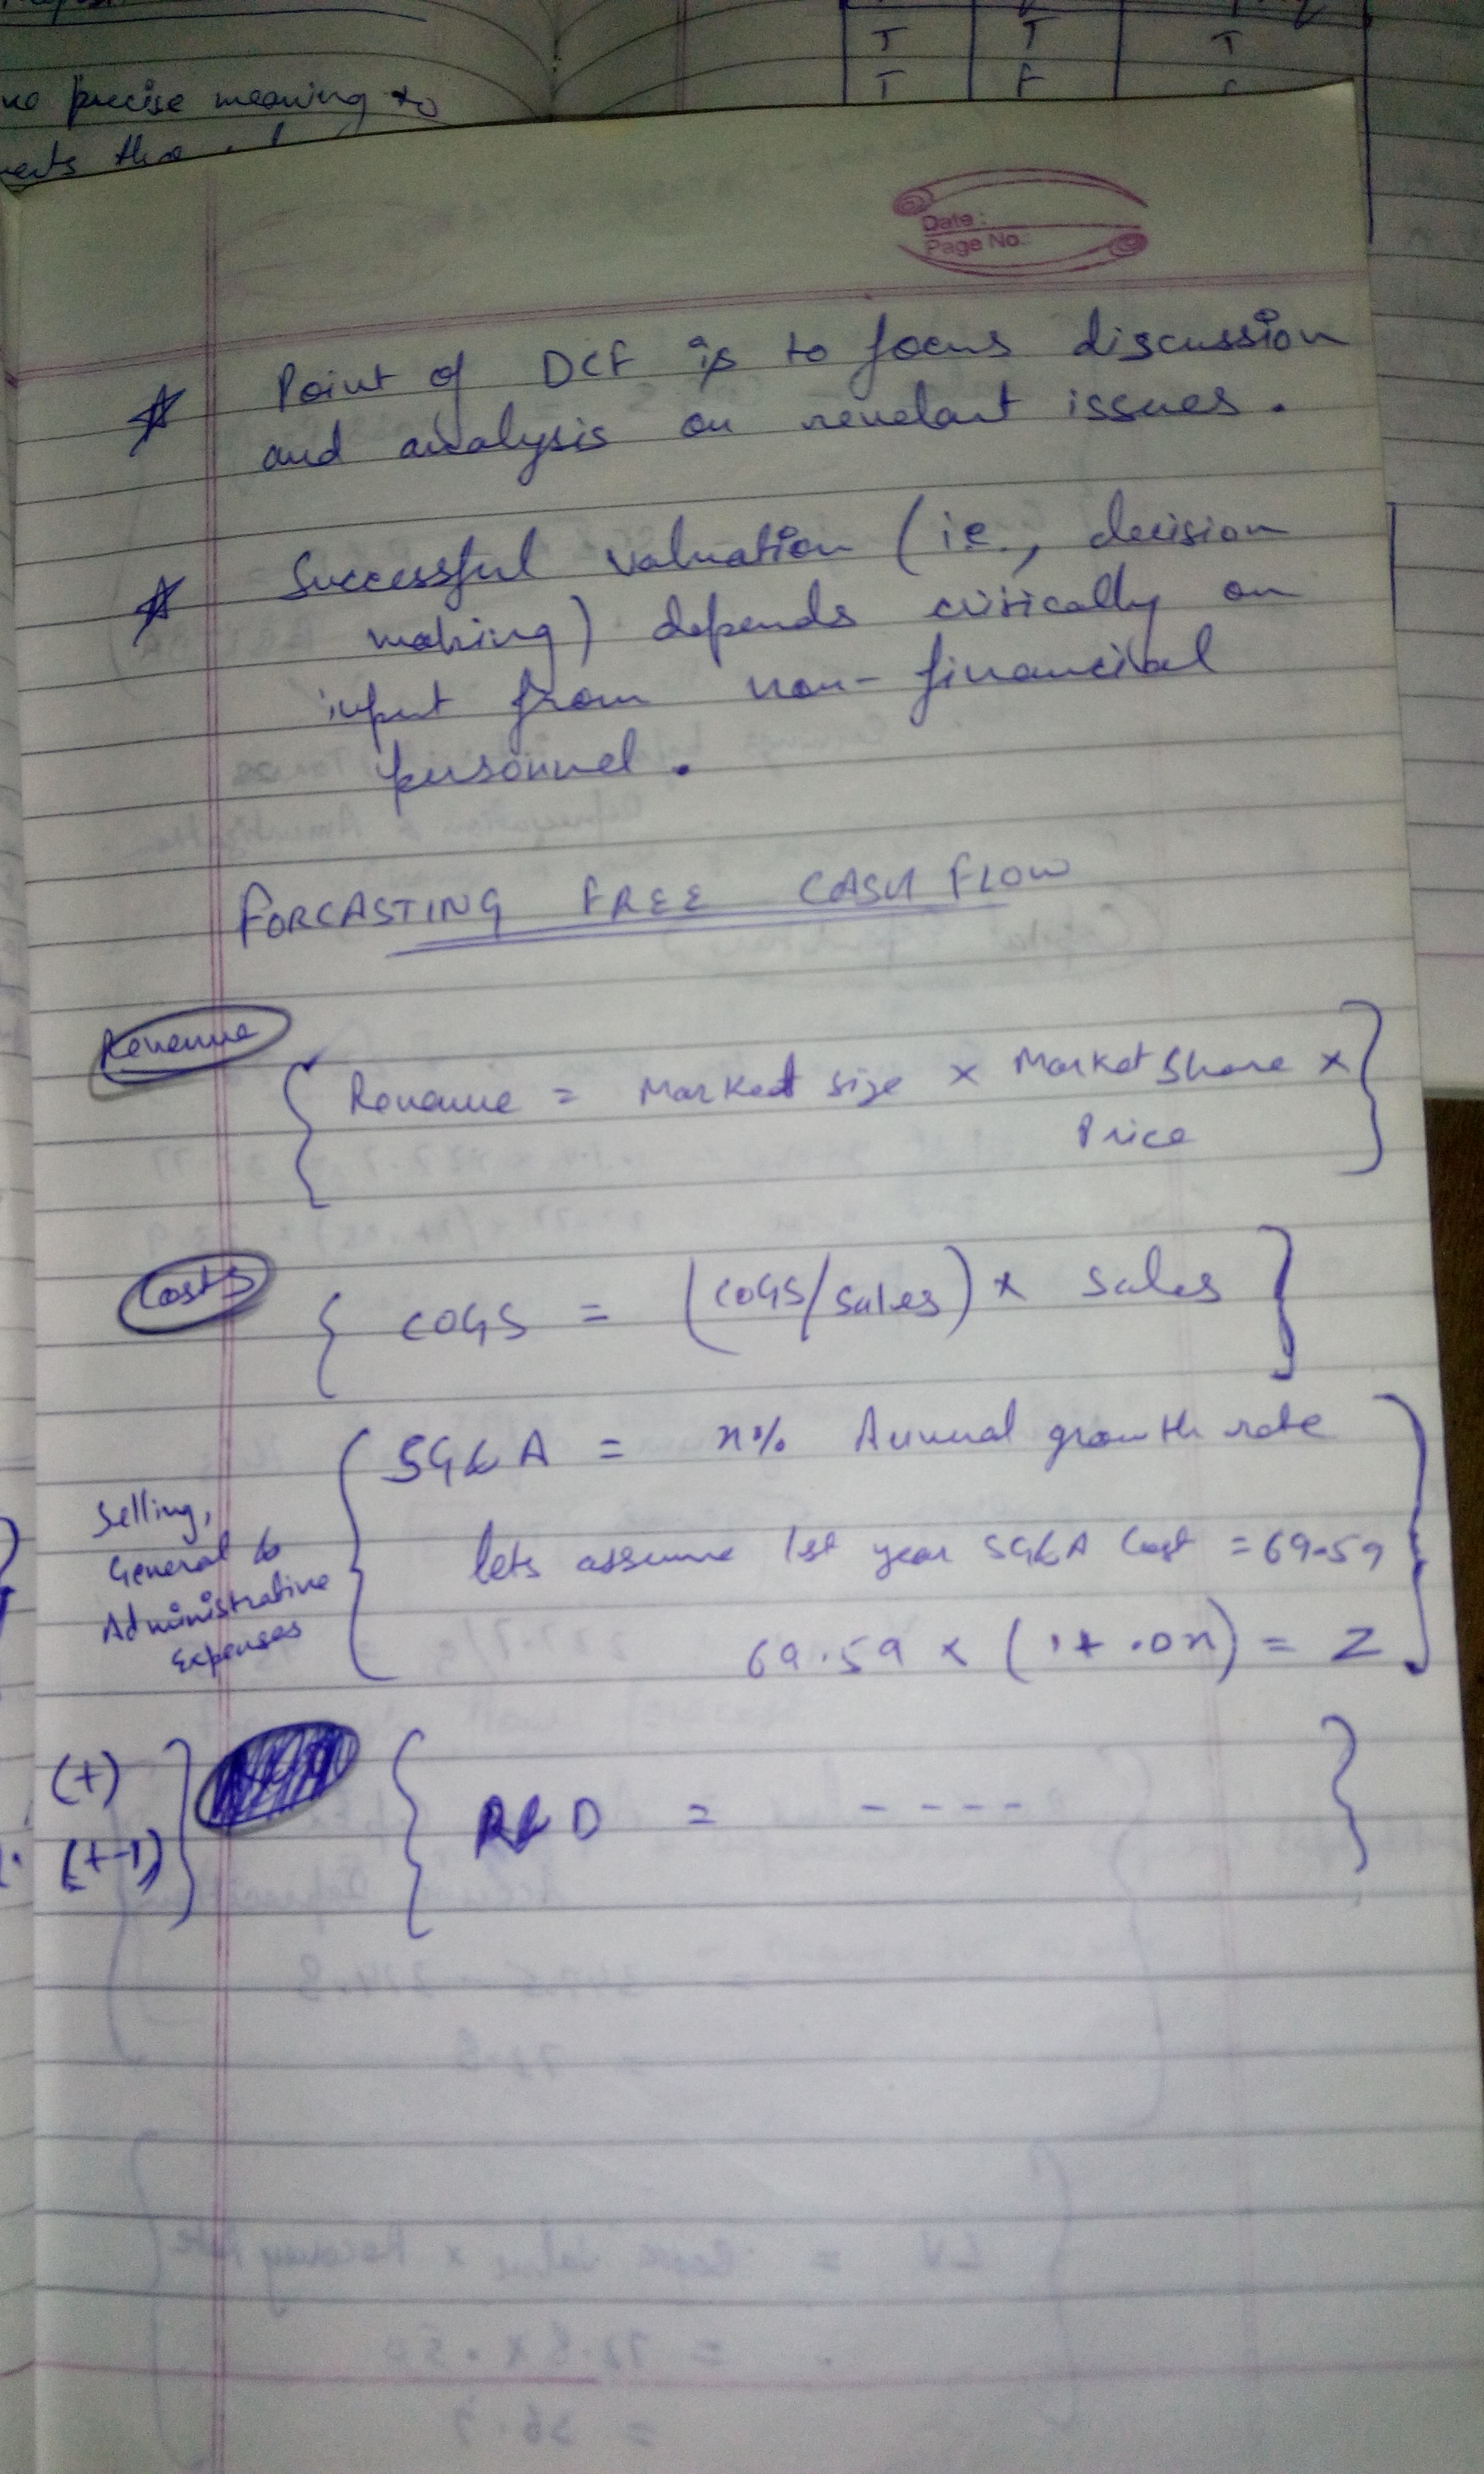 no precise meaning to
T T T
T F
Date :
Page No.:
Point of DCF is to focus discussion
and analysis on revelant issues.
Successful valuation (i.e., decision
making) depends critically on
input from non-financial
personnel.
FORCASTING FREE CASH FLOW
Revenue
Revenue = Market size × Market Share ×
Price
Costs
COGS = (COGS/Sales) × Sales
Selling,
General &
Administrative
Expenses
SG&A = n% Annual growth rate
lets assume 1st year SG&A Cost = 69.59
69.59 × (1+.0n) = Z
(+)
(+-1)
R&D = ----